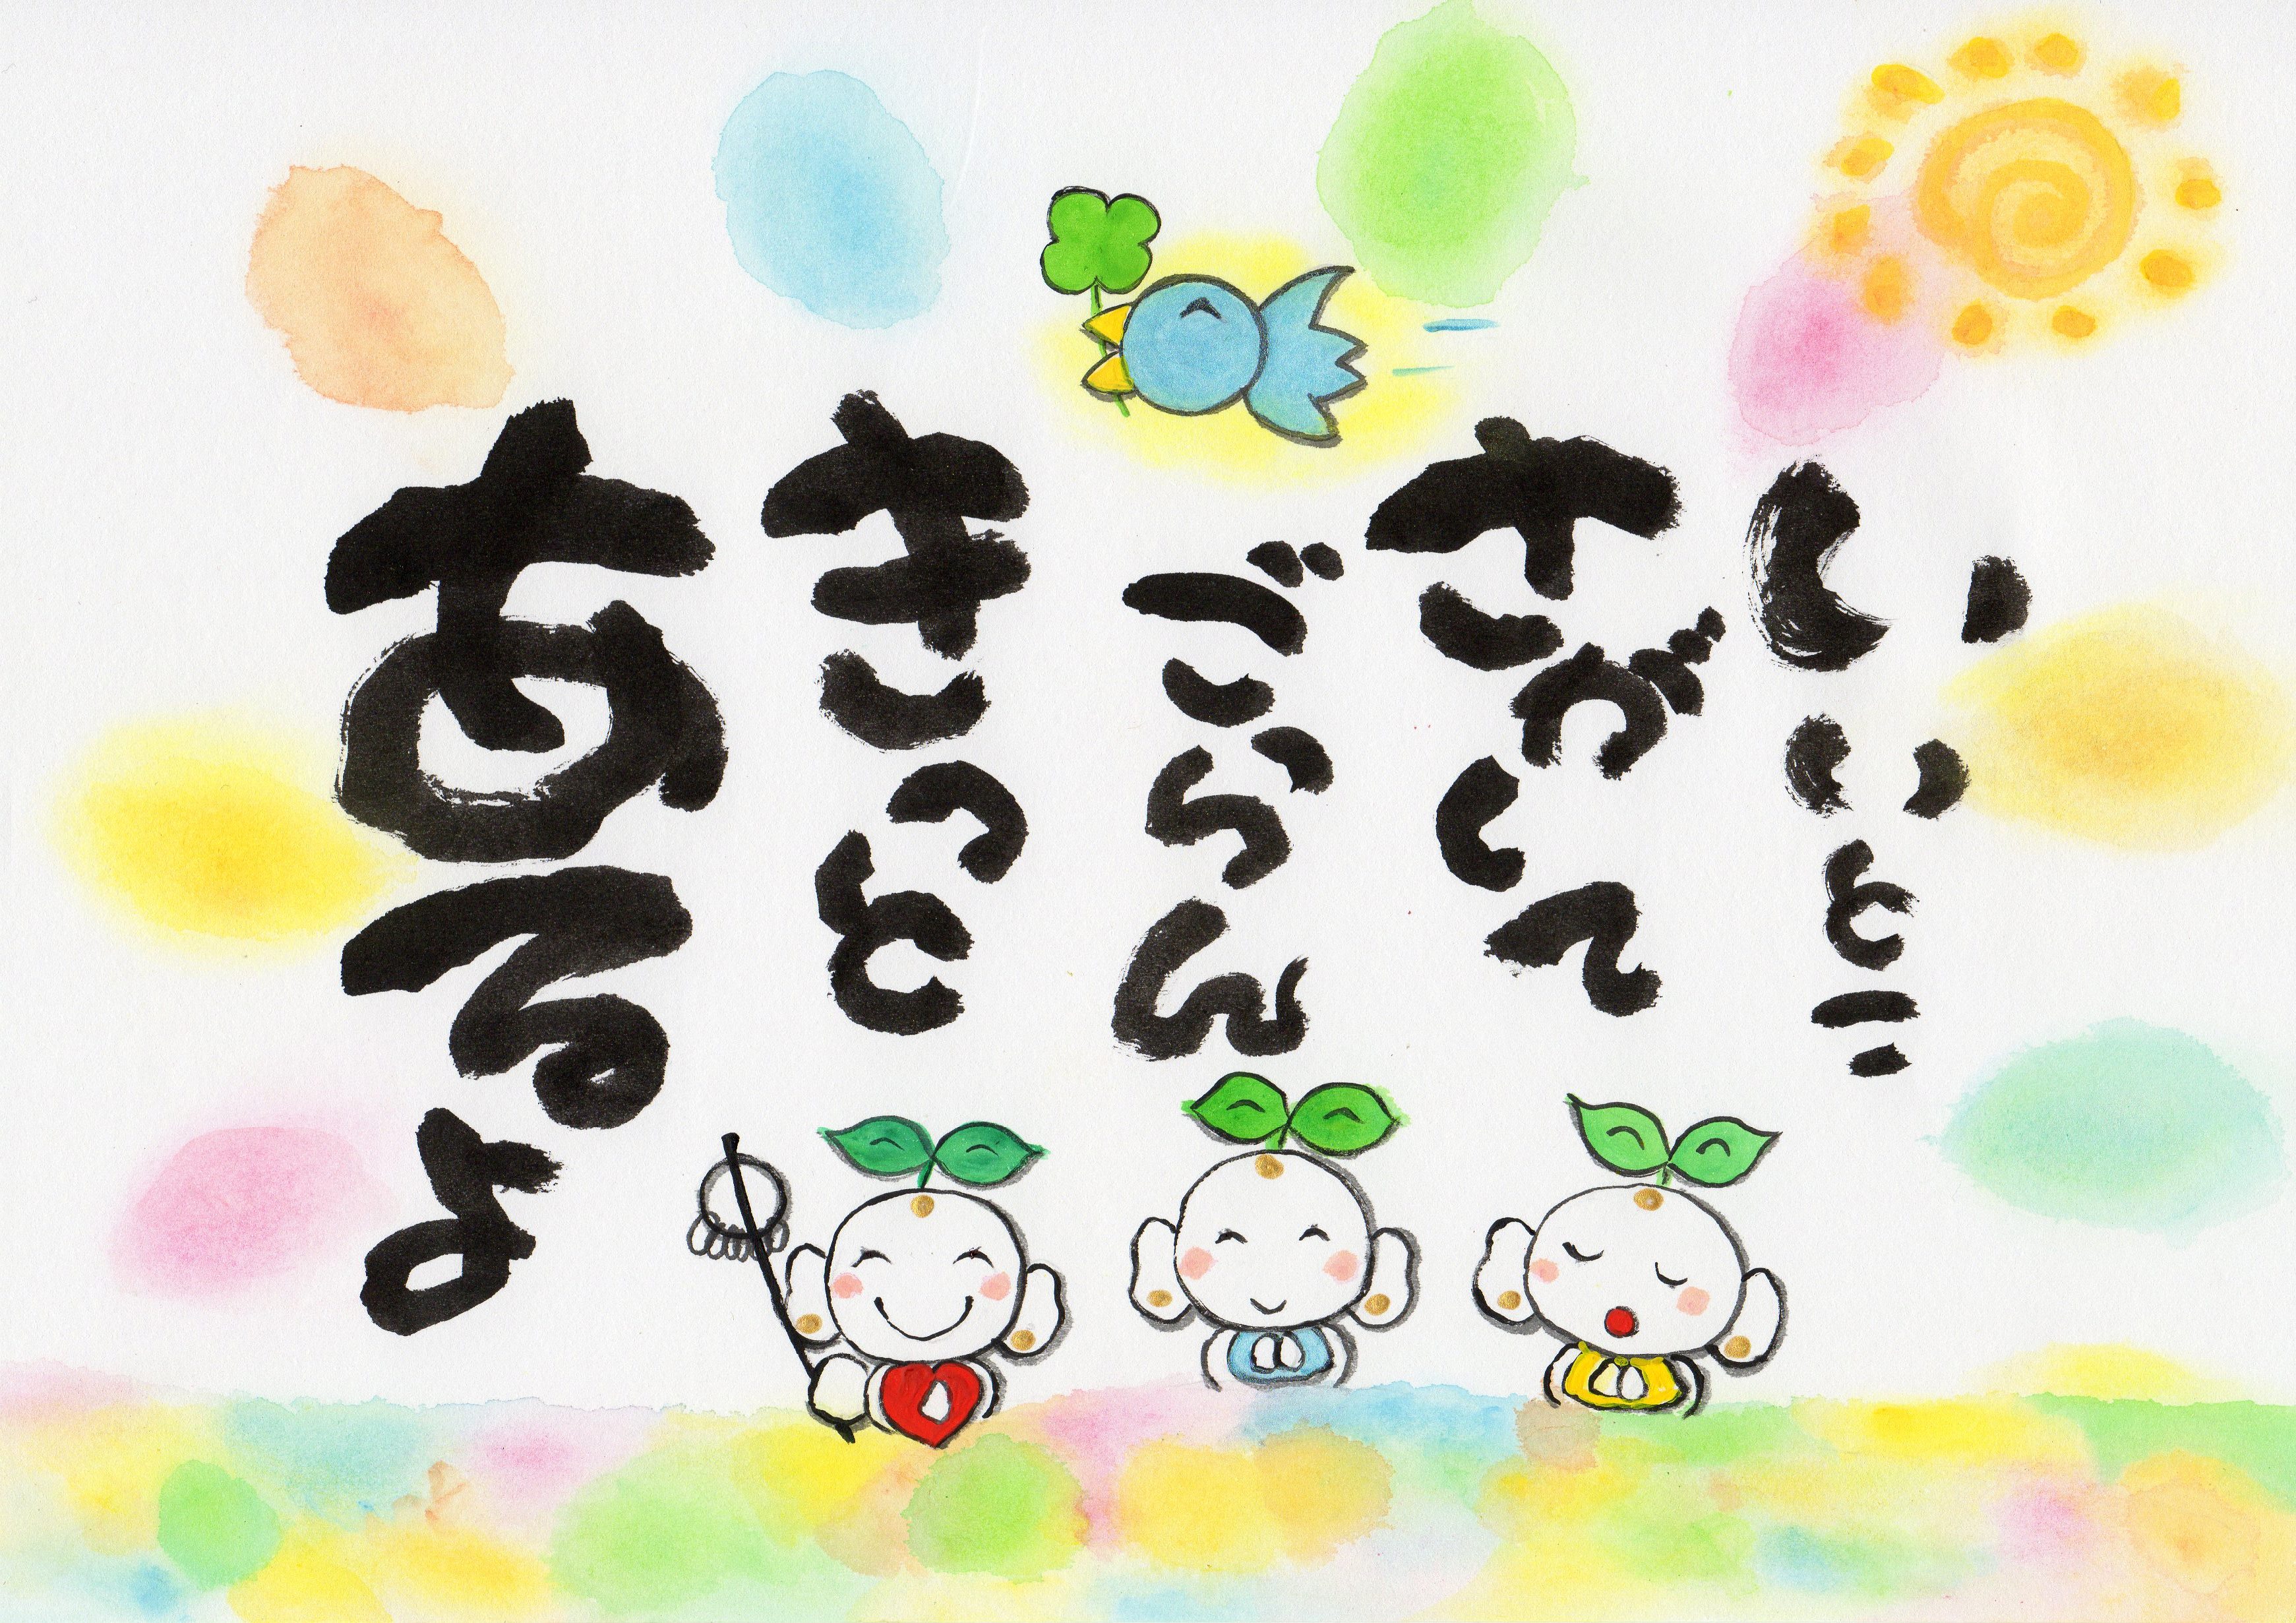 いいとこ
さがして
ごらん
きっと
あるよ